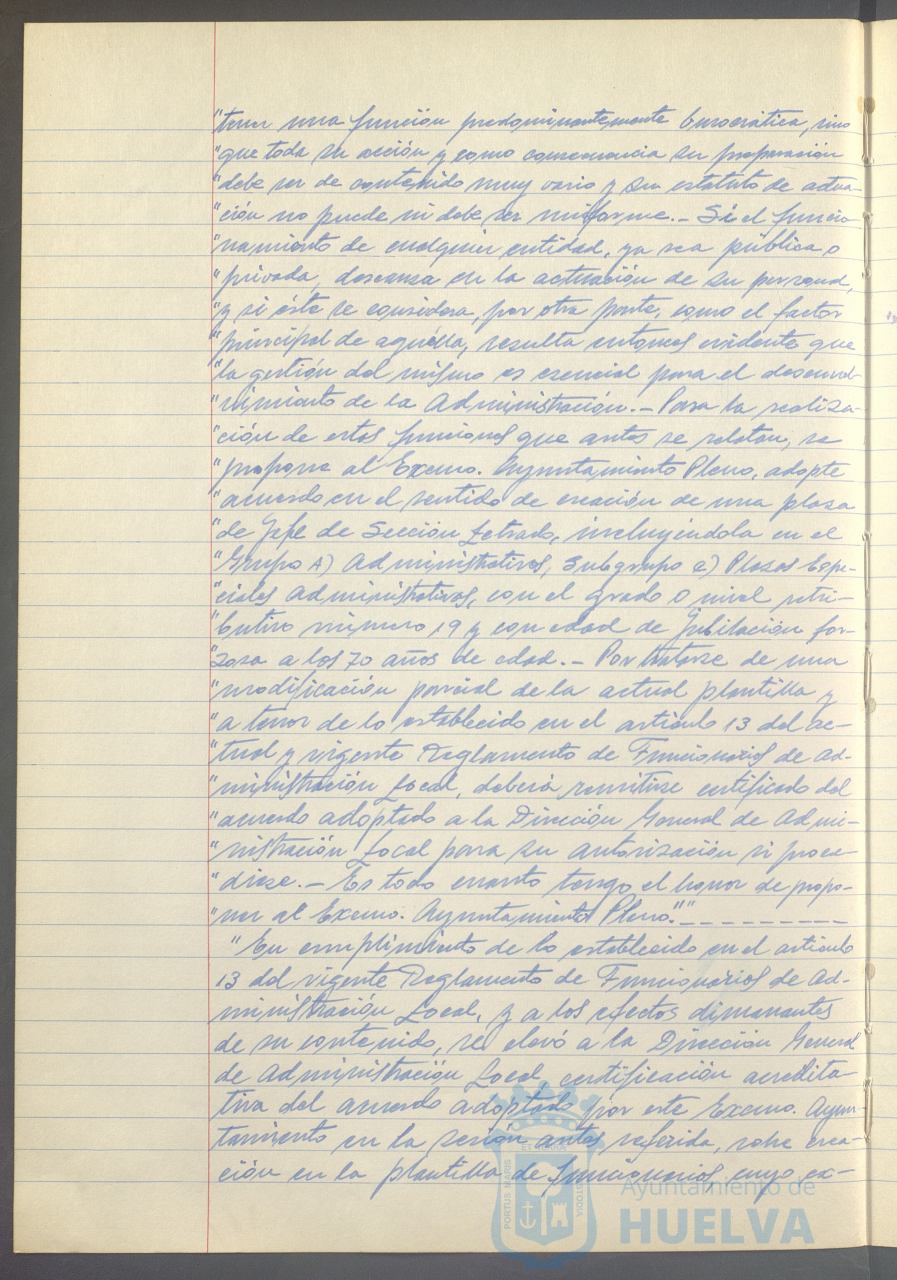 "tener una función predominantemente burocrática, sino
"que toda su acción y como consecuencia su preparación
"debe ser de contenido muy vario y su estatuto de actua-
"ción no puede ni debe ser uniforme.- Si el funcio-
"namiento de cualquier entidad, ya sea pública o
"privada, descansa en la actuación de su personal,
"y si éste se considera, por otra parte, como el factor
"principal de aquélla, resulta entonces evidente que
"la gestión del mismo es esencial para el desenvol-
"vimiento de la Administración.- Para la realiza-
"ción de estas funciones que antes se relatan, se
"propone al Excmo. Ayuntamiento Pleno, adopte
"acuerdo en el sentido de creación de una plaza
"de Jefe de Sección Letrado, incluyéndola en el
"Grupo A) Administrativos, Subgrupo e) Plazas Espe-
"ciales Administrativas, con el grado o nivel retri-
"butivo número 19 y con edad de jubilación for-
"zosa a los 70 años de edad.- Por tratarse de una
"modificación parcial de la actual plantilla y
"a tenor de lo establecido en el artículo 13 del ac-
"tual y vigente Reglamento de Funcionarios de Ad-
"ministración Local, deberá remitirse certificado del
"acuerdo adoptado a la Dirección General de Admi-
"nistración Local para su autorización si proce-
"diese.- Es todo cuanto tengo el honor de propo-
"ner al Excmo. Ayuntamiento Pleno.""----------
"En cumplimiento de lo establecido en el artículo
13 del vigente Reglamento de Funcionarios de Ad-
ministración Local, y a los efectos dimanantes
de su contenido, se elevó a la Dirección General
de Administración Local certificación acredita-
tiva del acuerdo adoptado por este Excmo. Ayun-
tamiento en la sesión antes referida, sobre crea-
ción en la plantilla de funcionarios, cuyo ex-
PORTUS MARIS
CUSTODIA
Ayuntamiento de
HUELVA